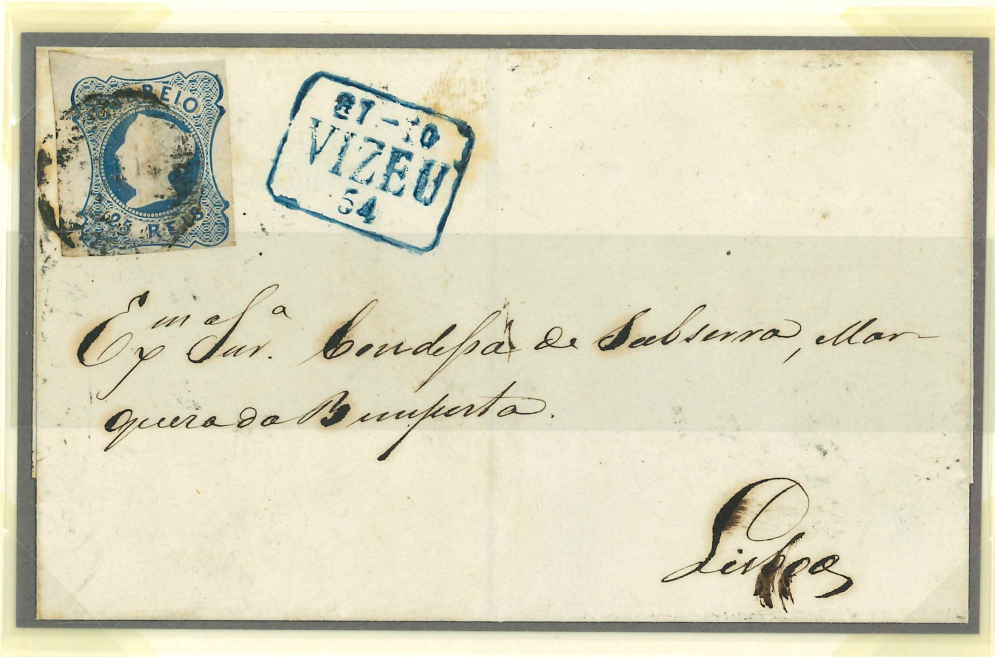 CORREIO
25 REIS
31-10
VIZEU
54
Exma Snra. Condessa de Subserra, Mar-
queza da Bemposta.
Lisboa